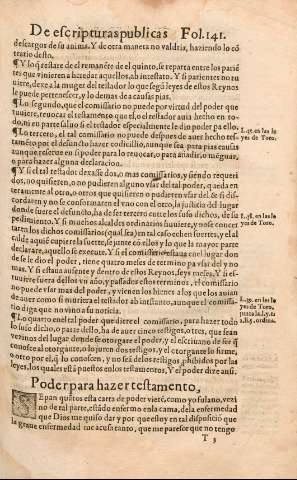 De escripturas publicas Fol. 141.
descargos de su anima. Y de otra manera no valdria, haziendo lo cõ
trario desto.
¶ Y lo q̃ restare de el remanẽte de el quinto, se reparta entre los pariẽ
tes que vinieren a heredar aquellos, ab intestato. Y si parientes no tu
uiere, dexe a la muger del testador lo que segũ leyes de estos Reynos
le puede pertenescer, y lo demas de a causas pias.
¶ Lo segundo, que el comissario no puede por virtud del poder que
tuuiere, reuocar el testamento que el, o el testador auia hecho en to-
do, ni en parte saluo si el testador especialmente le dio poder pa ello.
¶ Lo tercero, el tal comissario no puede despues de auer hecho tes-
tamẽto por el q̃ le dio el poder reuocarlo, aunque sea para pias causas
aunque reserue en si poder para lo reuocar, o para añadir, o mẽguar,
o para hazer alguna declaracion.
L. 35. en las le
yes de Toro.
¶ Y si el tal testador dexasse dos, o mas comissarios, y siendo requeri
dos, no quisieren, o no pudieren alguno vsar del tal poder, queda en
teramente al otro, o otros que quisieren o pudieren vsar del. E si dis-
cordaren y no se conformaren el vno con el otro, la justicia del lugar
donde fuere el defuncto, ha de ser tercero entre los suso dichos, de su
pedimiento. Y si muchos alcaldes ordinarios huuiere, y no se concer
taren los dichos comissarios
declarare, aquello se execute. Y si el comissario estaua en el lugar don
de se le dio el poder, tiene quatro meses de termino pa vsar del y no
mas. Y si estaua ausente y dentro de estos Reynos, seys meses. Y si es-
tuuiere fuera dellos vn año, y passados estos terminos, el comissario
no puede vsar mas del poder, y vienen los bienes a los que los auian
de auer como si muriera el testador ab intestato, aunque el comissa-
rio diga que no vino a su noticia.
L. 38. en las le
yes de Toro.
¶ Lo quarto en el tal poder que diere el comissario, para hazer todo
lo suso dicho, o parte dello, ha de auer cinco testigos, o tres, que sean
vezinos del lugar donde se otorgare el poder, y el escriuano de fee q̃
conosce al otorgante, o lo juren dos testigos, y el otorgante lo firme,
o otro por el, q̃ lo conosce, y no seã delos restigos prohibidos por las
leyes, los quales está puestos enlos testamentos. Y el poder dize assi.
L. 39. en las le
yes de Toro,
Poder para hazer testamento,
Sepan quãtos esta carta de poder vierẽ, como yo fulano, vezi
no de tal parte, estãdo enfermo en la cama, dela enfermedad
que Dios me quiso dar y por que estoy en tal disposició que
la graue enfermedad me acusa tanto, que me paresce que no tengo
T 3